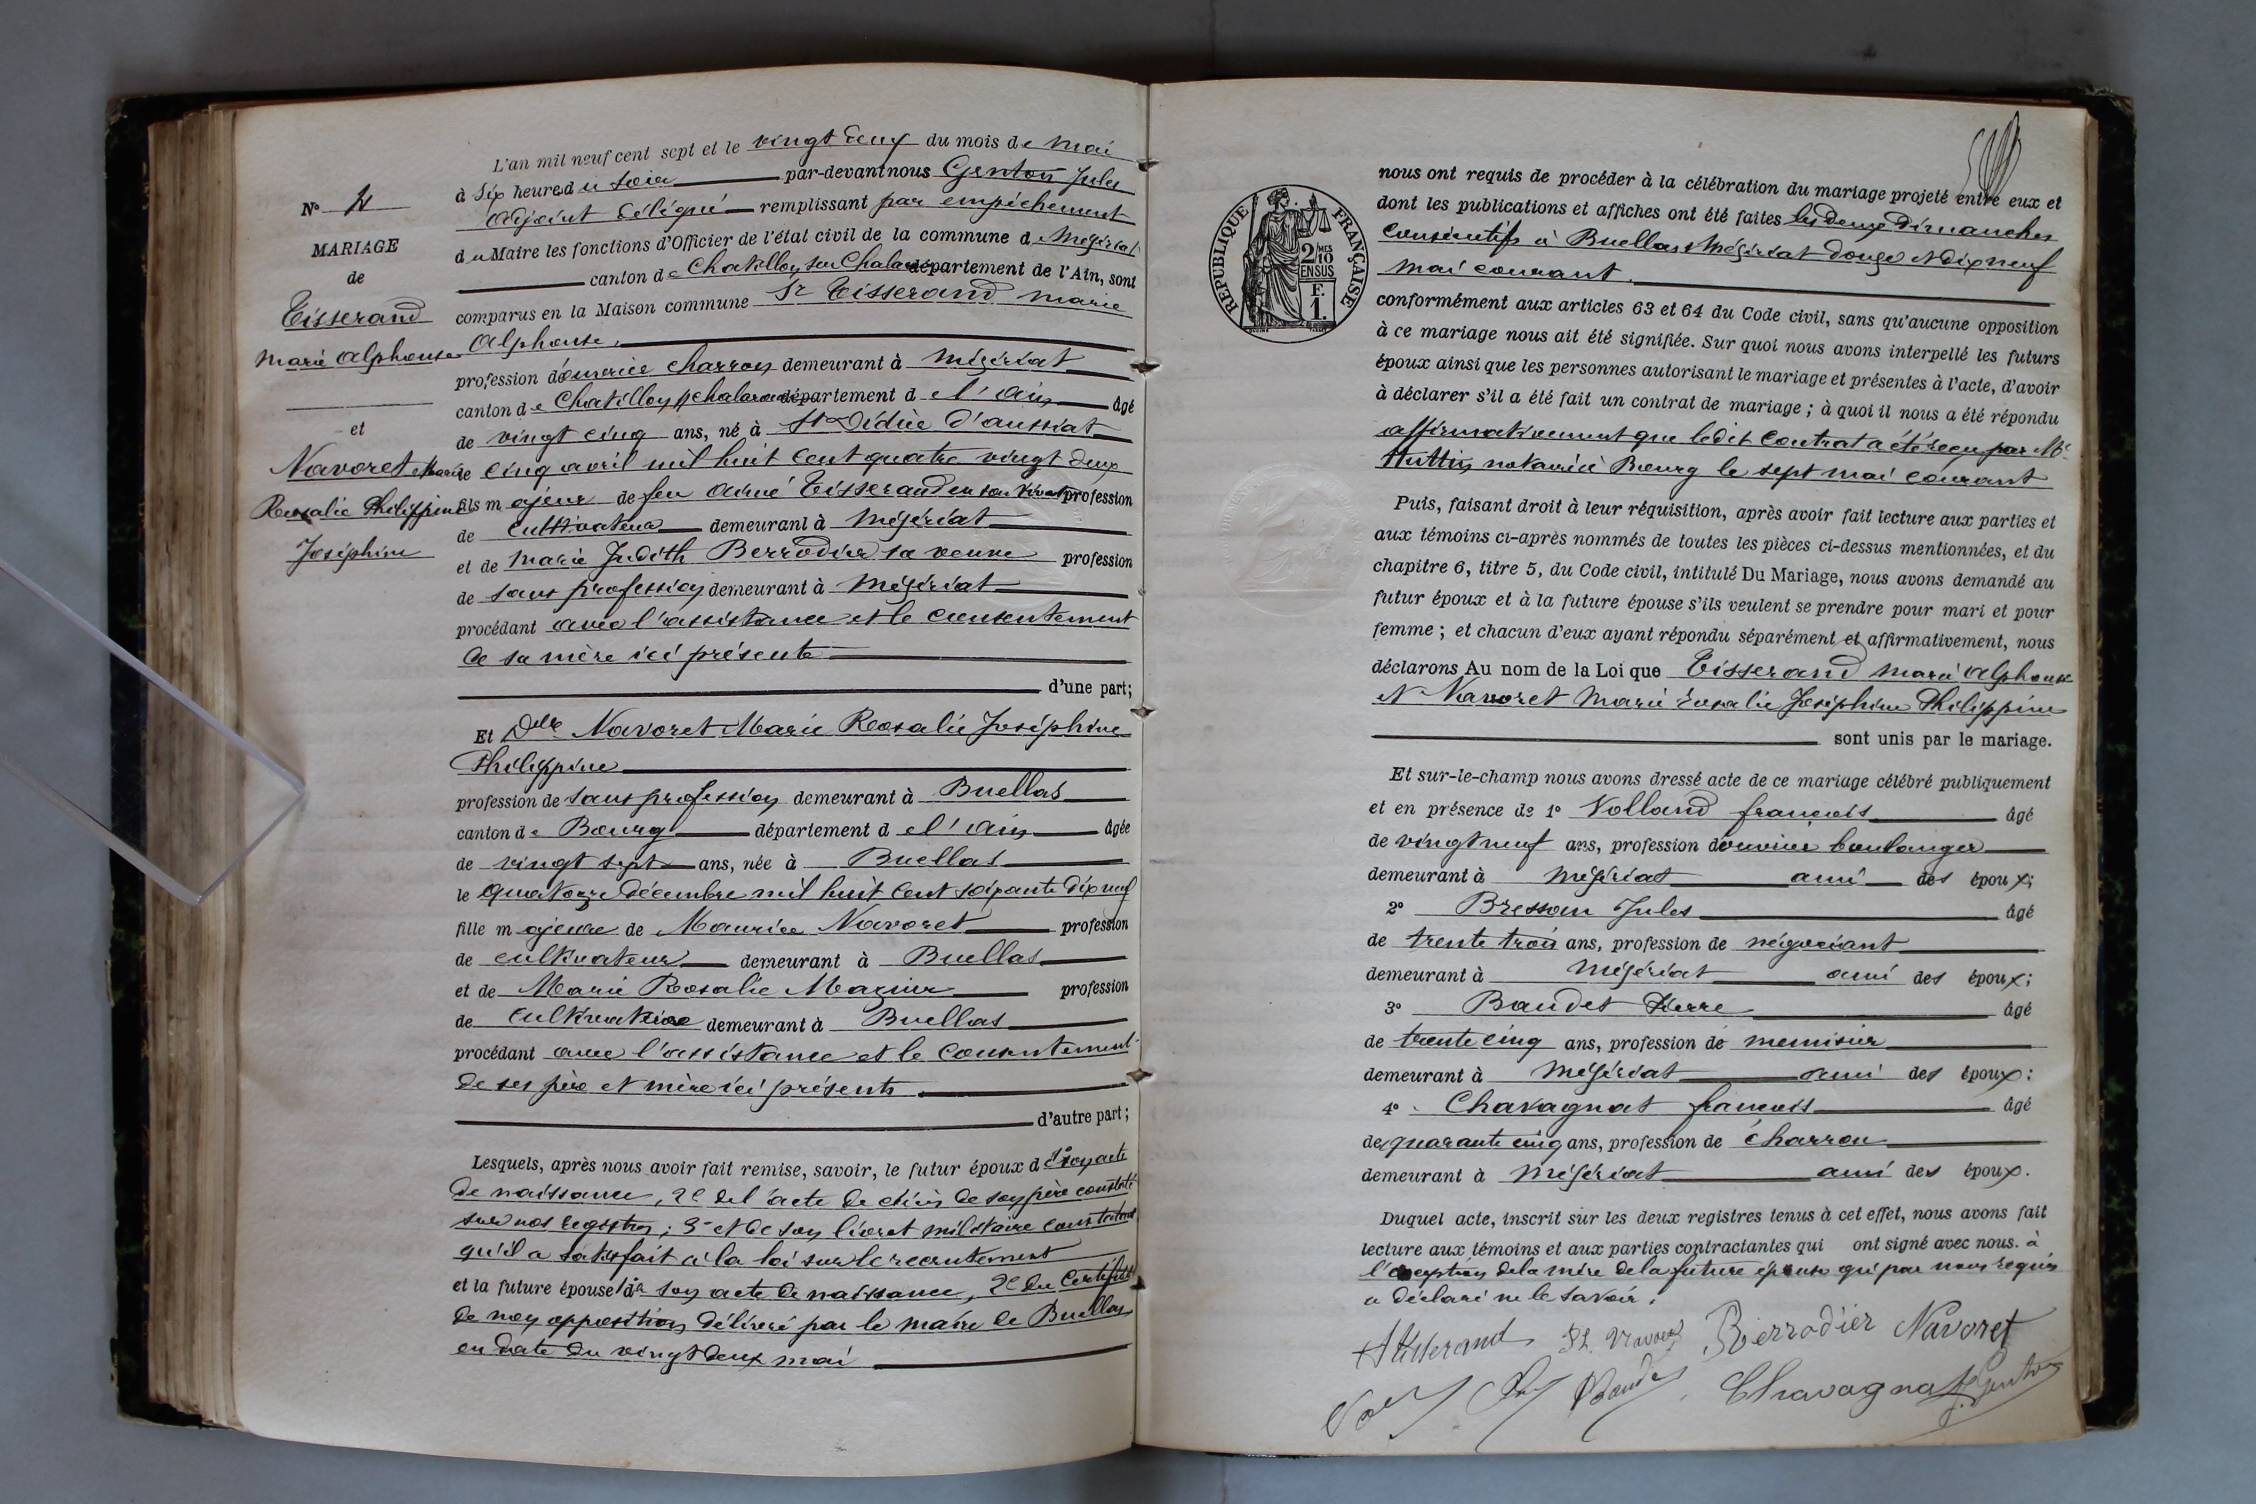 L'an mil neuf cent sept et le vingt deux du mois de mai
à six heures du soir par-devant nous Genton Jules
adjoint délégué remplissant par empêchement
du Maire les fonctions d'Officier de l'état civil de la commune de Mézériat
canton de Chatillon sur Chalaronne département de l'Ain, sont
comparus en la Maison commune Sr Tisserand Marie
Alphonse,
profession d'ouvrier charron demeurant à Mézériat
canton de Chatillon s/ chalaronne département de l'Ain âgé
de vingt cinq ans, né à St Didier d'aussiat
le cinq avril mil huit cent quatre vingt deux
fils majeur de feu Aimé Tisserand en son vivant profession
de cultivateur demeurant à Mézériat
et de Marie Judith Berrodier sa veuve profession
de sans profession demeurant à Mézériat
procédant avec l'assistance et le consentement
de sa mère ici présente
d'une part;
Et Delle Navoret Marie Rosalie Joséphine
Philippine
profession de sans profession demeurant à Buellas
canton de Bourg département de l'Ain âgée
de vingt sept ans, née à Buellas
le quatorze décembre mil huit cent soixante dix neuf
fille majeure de Maurice Navoret profession
de cultivateur demeurant à Buellas
et de Marie Rosalie Mazuir profession
de cultivatrice demeurant à Buellas
procédant avec l'assistance et le consentement
de ses père et mère ici présents.
d'autre part;
Lesquels, après nous avoir fait remise, savoir, le futur époux d 1° son acte
de naissance, 2° de l'acte de décès de son père constaté
sur nos registres; 3° et de son livret militaire constatant
qu'il a satisfait à la loi sur le recrutement
et la future épouse 1° de son acte de naissance, 2° du certificat
de non opposition délivré par le maire de Buellas
en date du vingt deux mai
N° 4
MARIAGE
de
Tisserand
Marie Alphonse
et
Navoret Marie
Rosalie Philippine
Joséphine
RÉPUBLIQUE FRANÇAISE
2/10MES
EN SUS
F.
1.
nous ont requis de procéder à la célébration du mariage projeté entre eux et
dont les publications et affiches ont été faites les deux dimanches
consécutifs à Buellas & Mézériat douze et dix neuf
mai courant.
conformément aux articles 63 et 64 du Code civil, sans qu'aucune opposition
à ce mariage nous ait été signifiée. Sur quoi nous avons interpellé les futurs
époux ainsi que les personnes autorisant le mariage et présentes à l'acte, d'avoir
à déclarer s'il a été fait un contrat de mariage ; à quoi il nous a été répondu
affirmativement que ledit contrat a été reçu par Me
Huttin notaire à Bourg le sept mai courant
Puis, faisant droit à leur réquisition, après avoir fait lecture aux parties et
aux témoins ci-après nommés de toutes les pièces ci-dessus mentionnées, et du
chapitre 6, titre 5, du Code civil, intitulé Du Mariage, nous avons demandé au
futur époux et à la future épouse s'ils veulent se prendre pour mari et pour
femme ; et chacun d'eux ayant répondu séparément et affirmativement, nous
déclarons Au nom de la Loi que Tisserand Marie Alphonse
et Navoret Marie Rosalie Joséphine Philippine
sont unis par le mariage.
Et sur-le-champ nous avons dressé acte de ce mariage célébré publiquement
et en présence de 1° Volland françois âgé
de vingt neuf ans, profession d'ouvrier boulanger
demeurant à Mézériat ami des époux;
2° Bressan Jules âgé
de trente trois ans, profession de négociant
demeurant à Mézériat ami des époux;
3° Baudet Pierre âgé
de trente cinq ans, profession de menuisier
demeurant à Mézériat ami des époux;
4° Chavagnat françois âgé
de quarante cinq ans, profession de charron
demeurant à Mézériat ami des époux.
Duquel acte, inscrit sur les deux registres tenus à cet effet, nous avons fait
lecture aux témoins et aux parties contractantes qui ont signé avec nous. à
l'exception de la mère de la future épouse qui par nous requis
a déclaré ne le savoir.
ATisserand Ph. Navoret Berrodier Navoret
Baudet Chavagnat J. Genton